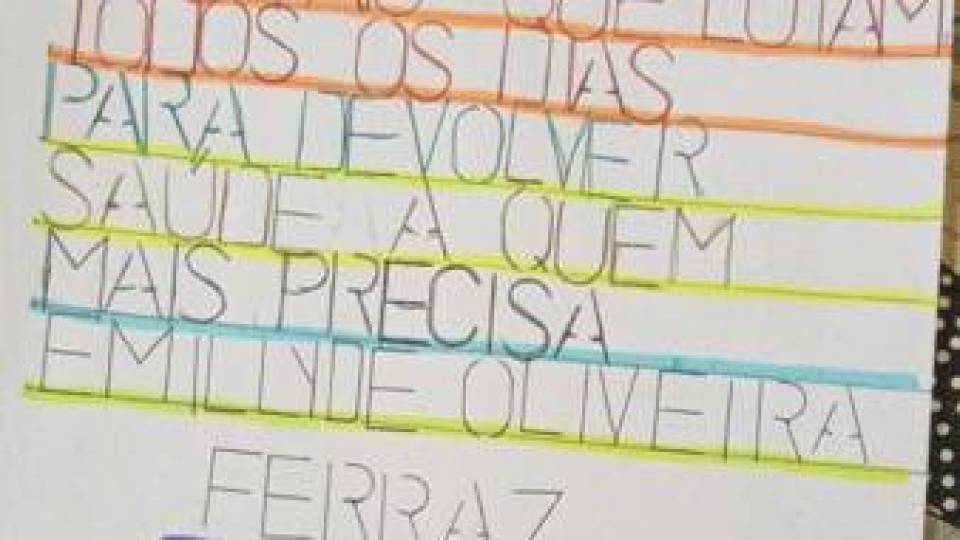 QUE LUTAM
TODOS OS DIAS
PARA DEVOLVER
SAÚDE A QUEM
MAIS PRECISA
OLIVEIRA
FERRAZ